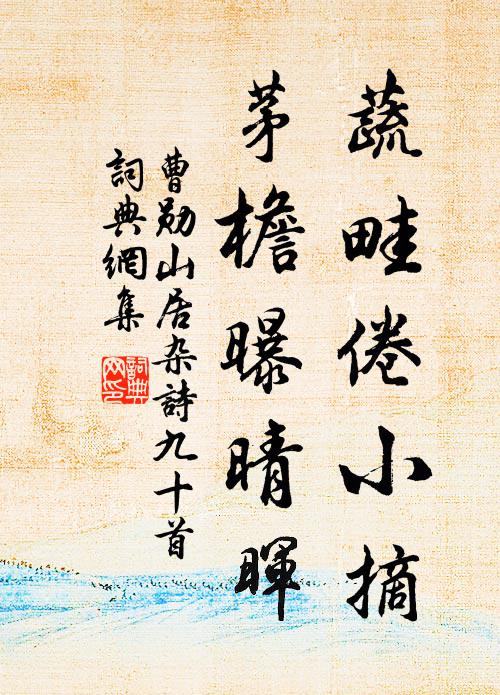 蔬畦倦小摘
茅檐曝晴暉
曹勛山居杂詩九十首
詞典網集
詞典网印